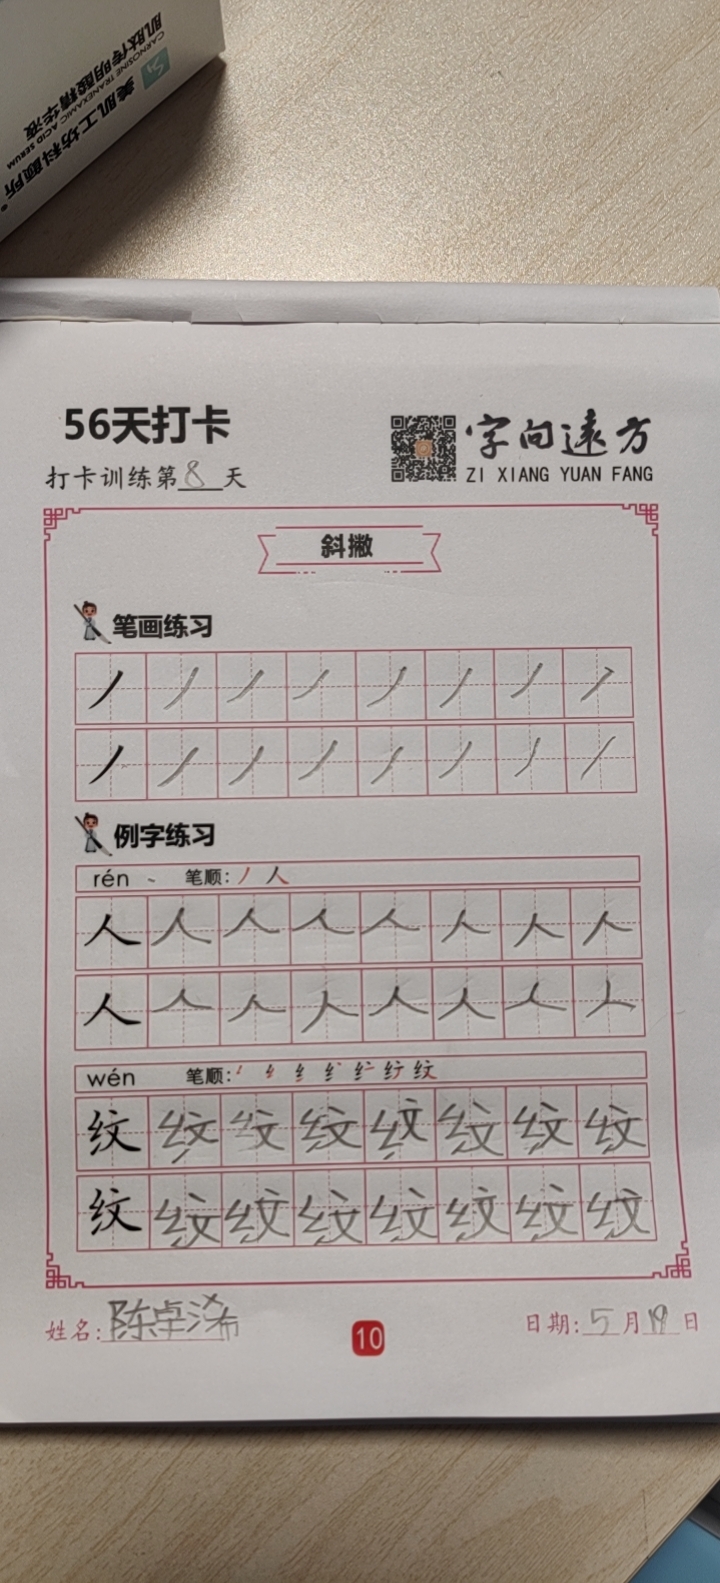 肌肽传明酸精华液
CARNOSINE TRANEXAMIC ACID SERUM
美肌工坊科颜所
56天打卡
打卡训练第8天
字向远方
ZI XIANG YUAN FANG
斜撇
笔画练习
丿丿丿丿丿丿丿丿
丿丿丿丿丿丿丿丿
例字练习
rén 笔顺:丿人
人人人人人人人人
人人人人人人人人
wén 笔顺: 纹
纹纹纹纹纹纹纹纹
纹纹纹纹纹纹纹纹
姓名:陈卓浠
10
日期:5月19日